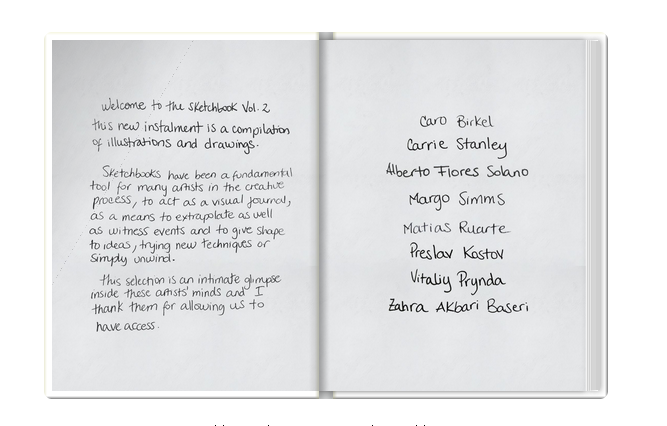 Welcome to the Sketchbook Vol. 2
this new instalment is a compilation
of illustrations and drawings.
Sketchbooks have been a fundamental
tool for many artists in the creative
process, to act as a visual journal,
as a means to extrapolate as well
as witness events and to give shape
to ideas, trying new techniques or
simply unwind.
this selection is an intimate glimpse
inside these artists' minds and I
thank them for allowing us to
have access.
Caro Birkel
Carrie Stanley
Alberto Fiores Solano
Margo Simms
Matias Ruarte
Preslav Kostov
Vitaliy Prynda
Zahra Akbari Baseri